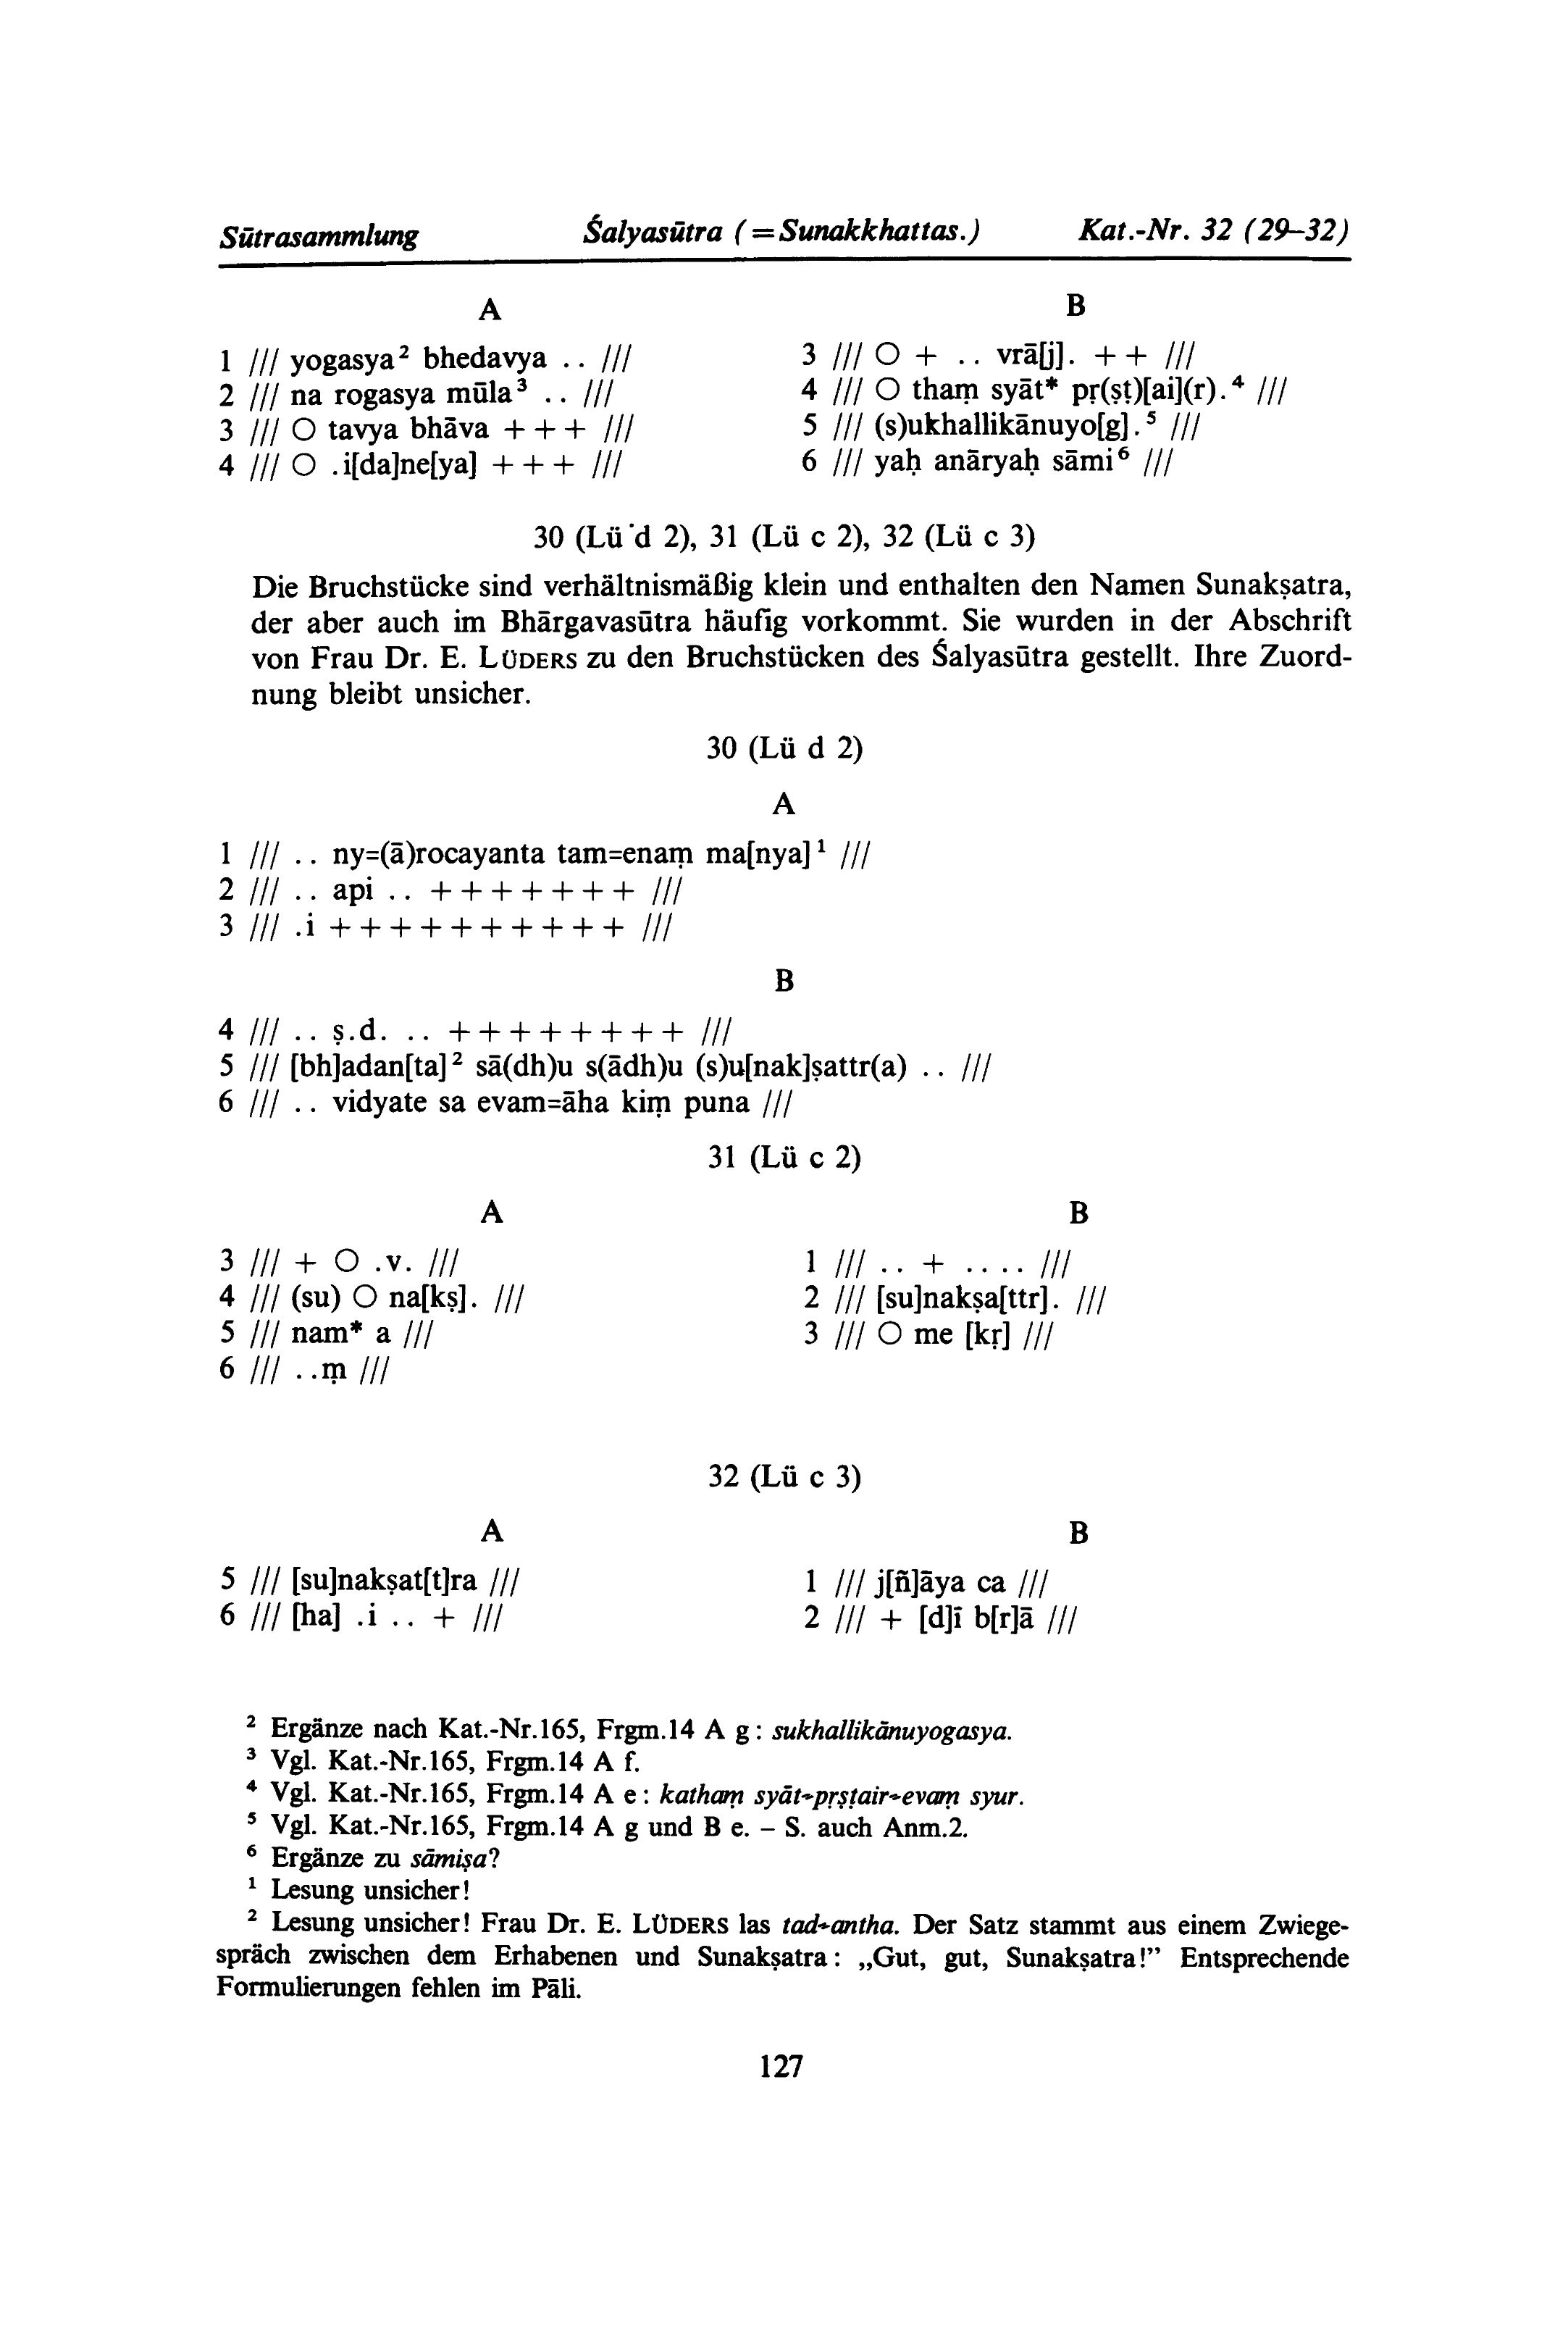 Sūtrasammlung Śalyasūtra (=Sunakkhattas.) Kat.-Nr. 32 (29–32)
A
1 /// yogasya² bhedavya . . ///
2 /// na rogasya mūla³ . . ///
3 /// ○ tavya bhāva + + + ///
4 /// ○ .i[da]ne[ya] + + + ///
B
3 /// ○ + . . vrā[j]. + + ///
4 /// ○ thaṃ syāt* pṛ(ṣṭ)[ai](r).⁴ ///
5 /// (s)ukhallikānuyo[g].⁵ ///
6 /// yaḥ anāryaḥ sāmi⁶ ///
30 (Lü d 2), 31 (Lü c 2), 32 (Lü c 3)
Die Bruchstücke sind verhältnismäßig klein und enthalten den Namen Sunakṣatra,
der aber auch im Bhārgavasūtra häufig vorkommt. Sie wurden in der Abschrift
von Frau Dr. E. LÜDERS zu den Bruchstücken des Śalyasūtra gestellt. Ihre Zuord-
nung bleibt unsicher.
30 (Lü d 2)
A
1 /// . . ny=(ā)rocayanta tam=enaṃ ma[nya]¹ ///
2 /// . . api . . + + + + + + + ///
3 /// .i + + + + + + + + + + ///
B
4 /// . . ṣ.d. . . + + + + + + + + ///
5 /// [bh]adan[ta]² sā(dh)u s(ādh)u (s)u[nak]ṣattr(a) . . ///
6 /// . . vidyate sa evam=āha kiṃ puna ///
31 (Lü c 2)
A
3 /// + ○ .v. ///
4 /// (su) ○ na[kṣ]. ///
5 /// nam* a ///
6 /// . .ṃ ///
B
1 /// . . + . . . . ///
2 /// [su]nakṣa[ttr]. ///
3 /// ○ me [kṛ] ///
32 (Lü c 3)
A
5 /// [su]nakṣat[t]ra ///
6 /// [ha] .i . . + ///
B
1 /// j[ñ]āya ca ///
2 /// + [d]ī b[r]ā ///
² Ergänze nach Kat.-Nr.165, Frgm.14 A g: sukhallikānuyogasya.
³ Vgl. Kat.-Nr.165, Frgm.14 A f.
⁴ Vgl. Kat.-Nr.165, Frgm.14 A e: kathaṃ syāt-pṛṣṭair-evaṃ syur.
⁵ Vgl. Kat.-Nr.165, Frgm.14 A g und B e. – S. auch Anm.2.
⁶ Ergänze zu sāmiṣa?
¹ Lesung unsicher!
² Lesung unsicher! Frau Dr. E. LÜDERS las tad-antha. Der Satz stammt aus einem Zwiege-
spräch zwischen dem Erhabenen und Sunakṣatra: „Gut, gut, Sunakṣatra!” Entsprechende
Formulierungen fehlen im Pāli.
127